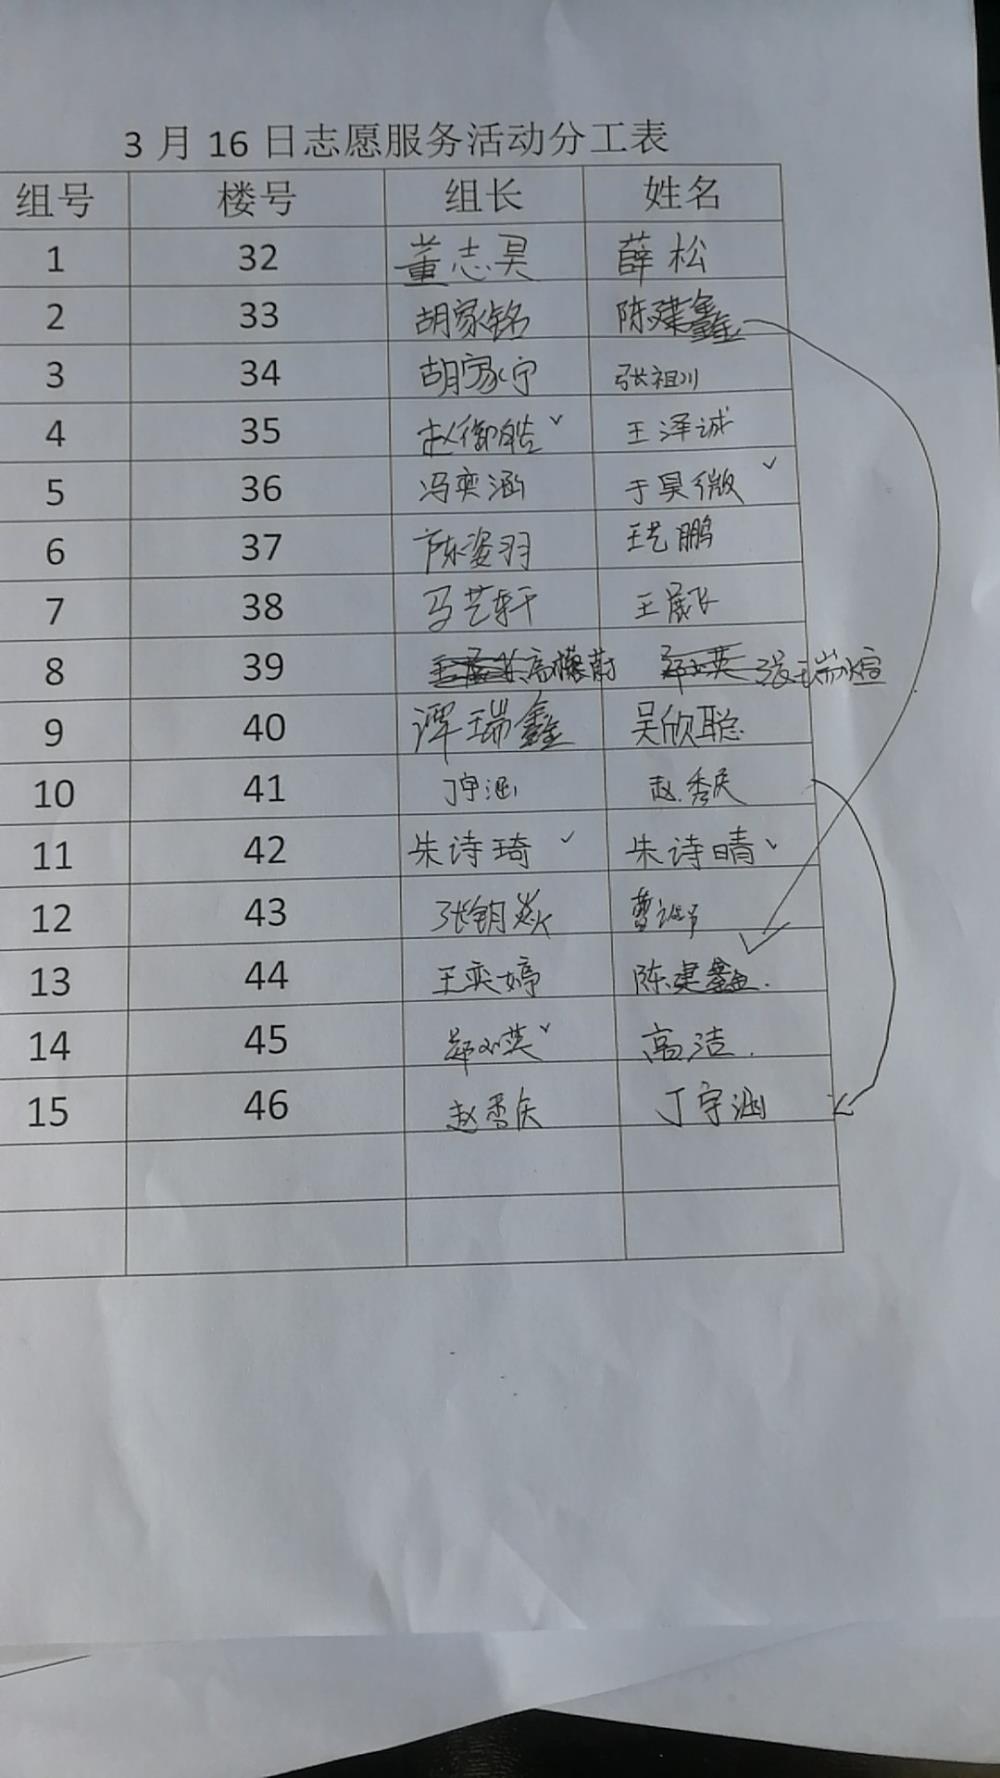 3月16日志愿服务活动分工表
组号 楼号 组长 姓名
1 32 董志昊 薛松
2 33 胡家铭 陈建鑫
3 34 胡家宁 张祖川
4 35 赵御皓 王泽诚
5 36 冯奕涵 于昊微
6 37 陈姿羽 王艺鹏
7 38 马艺轩 王展飞
8 39 高横蔚 郑文英 张瑞煊
9 40 谭瑞鑫 吴欣聪
10 41 丁宇涵 赵秀庆
11 42 朱诗琦 朱诗晴
12 43 张钥焱 曹
13 44 王奕婷 陈建鑫.
14 45 郑文英 高洁.
15 46 赵秀庆 丁宇涵